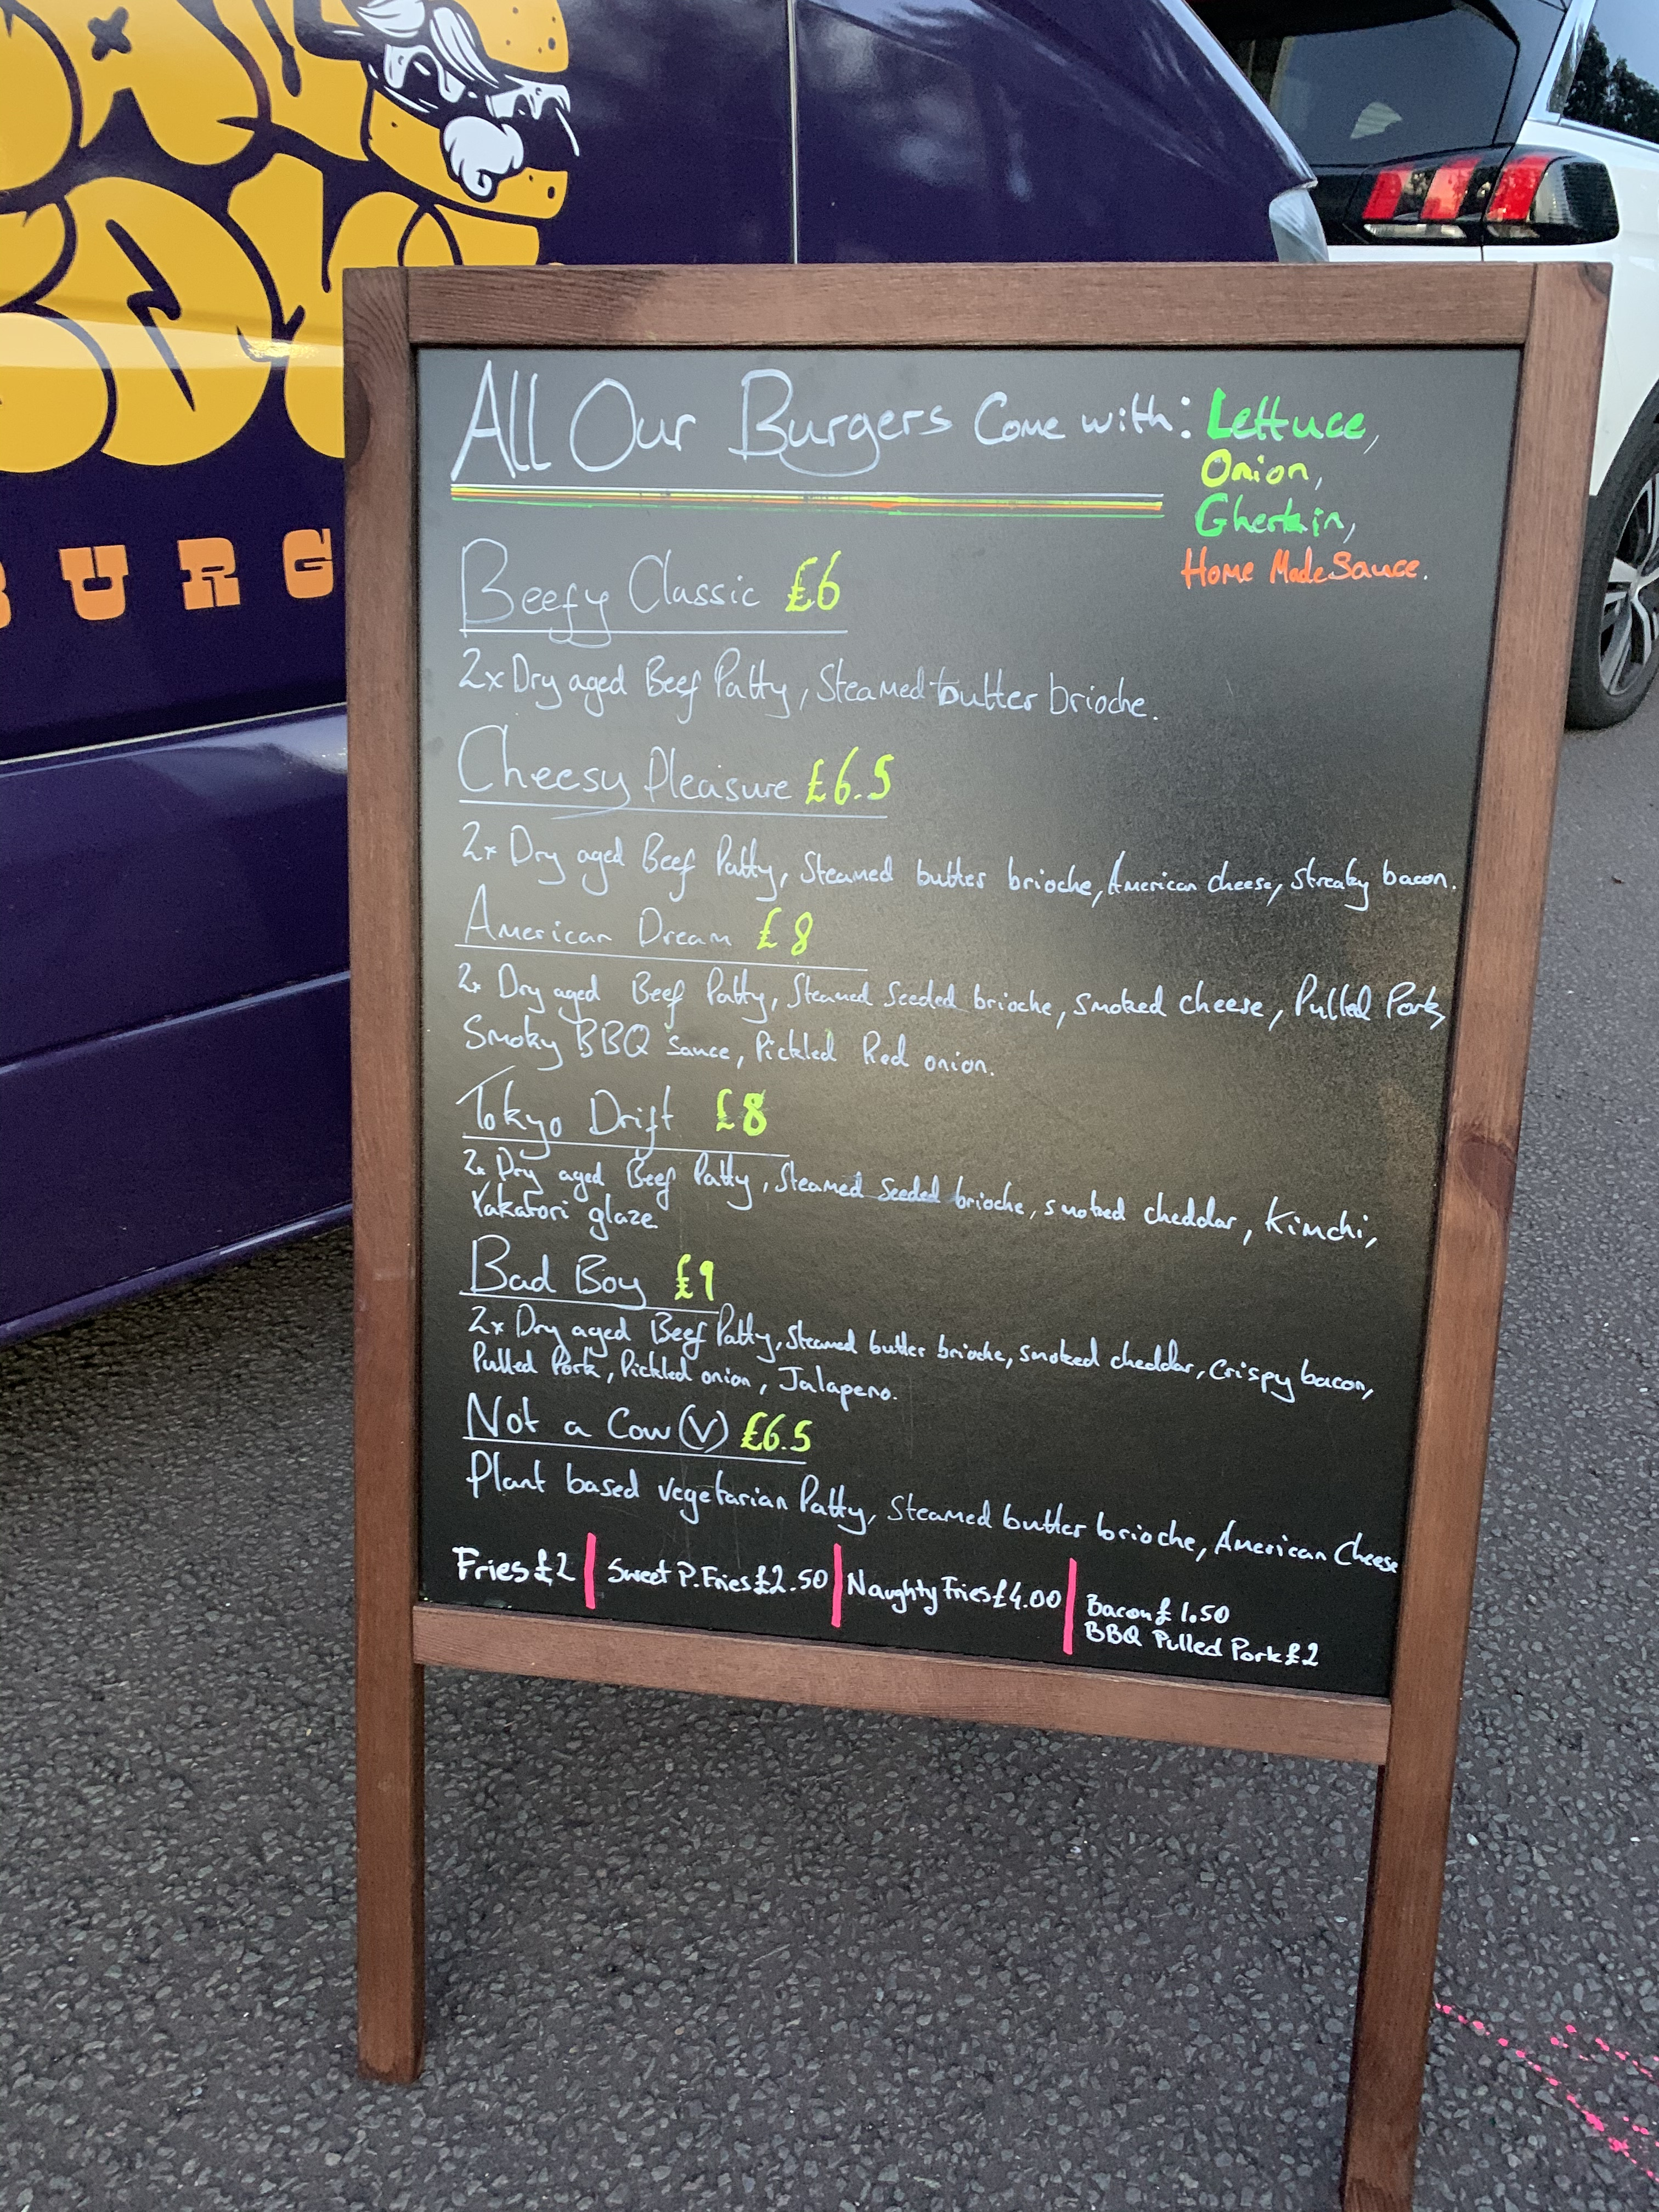 BURG
All Our Burgers Come with: Lettuce,
Onion,
Gherkin,
Home Made Sauce.
Beefy Classic £6
2x Dry aged Beef Patty, Steamed butter brioche.
Cheesy Pleasure £6.5
2x Dry aged Beef Patty, Steamed butter brioche, American cheese, streaky bacon.
American Dream £8
2x Dry aged Beef Patty, Steamed Seeded brioche, smoked cheese, Pulled Pork,
Smoky BBQ Sauce, Pickled Red onion.
Tokyo Drift £8
2x Dry aged Beef Patty, Steamed Seeded brioche, smoked cheddar, Kimchi,
Yakatori glaze
Bad Boy £9
2x Dry aged Beef Patty, Steamed butter brioche, smoked cheddar, Crispy bacon,
Pulled Pork, Pickled onion, Jalapeno.
Not a Cow (V) £6.5
Plant based vegetarian Patty, Steamed butter brioche, American Cheese
Fries £2 | Sweet P. Fries £2.50 | Naughty Fries £4.00 | Bacon £1.50
BBQ Pulled Pork £2